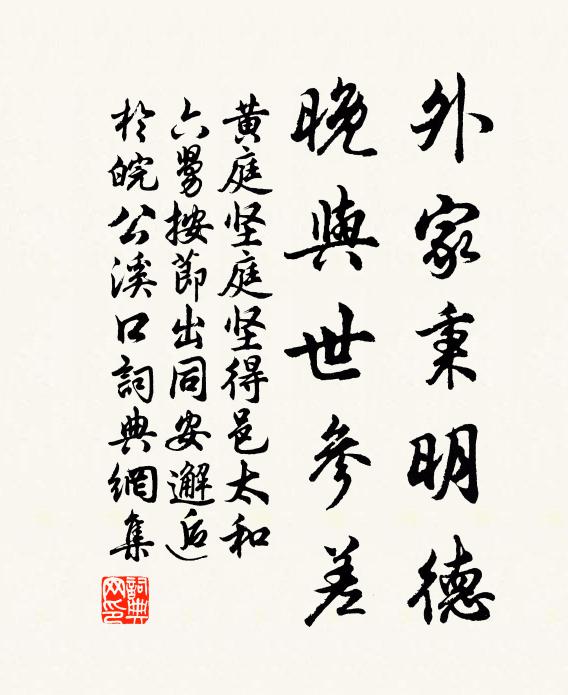 外家秉明德
晚與世參差
黄庭坚庭坚得邑太和
六舅按節出同安邂逅
於皖公溪口詞典網集
詞典网印